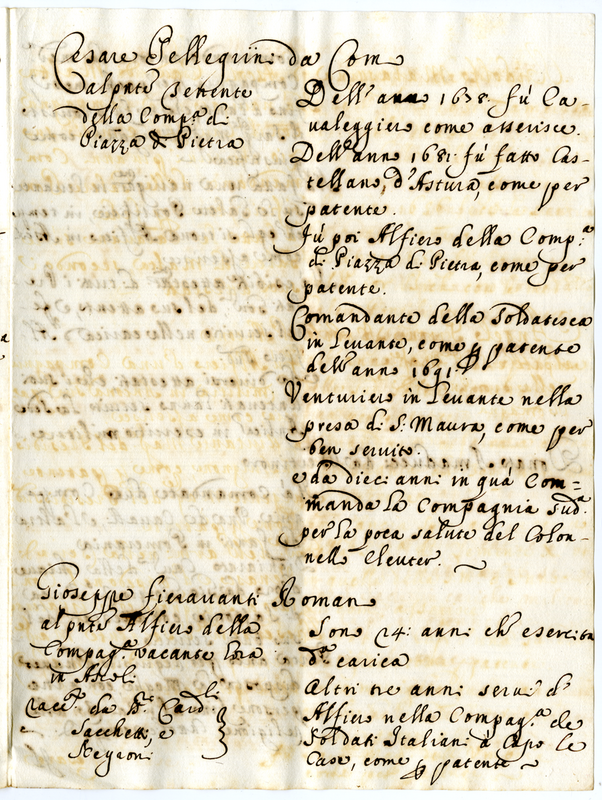 Cesare Pellegrini da Com
al pnte Tenente
della Comp.a di
Piazza di Pietra
Dell' anno 1638. fù Ca-
valeggiero come asserisce.
Dell' anno 1681. fù fatto Cas-
tellano, d'Astura, come per
patente.
Fù poi Alfiero della Comp.a
di Piazza di Pietra, come per
patente.
Comandante della Soldatesca
in Levante, come p patente
dell' anno 1691.
Venturiero in Levante nella
presa di S. Maura, come per
ben servito.
e dà dieci anni in quà Com-
manda la Compagnia sud.a
per la poca salute del Colon-
nello Cleuter.
Gioseppe fieravanti Roman
al pnte Alfiero della
Compag.a vacante
in Ascoli
racc. da SS.ri Card.li
Sacchetti, e
Negroni
Sono 24. anni che esercita
d.a carica
Altri tre anni servì d'
Alfiero nella Compag.a de
Soldati Italiani à Capo le
Case, come p patente